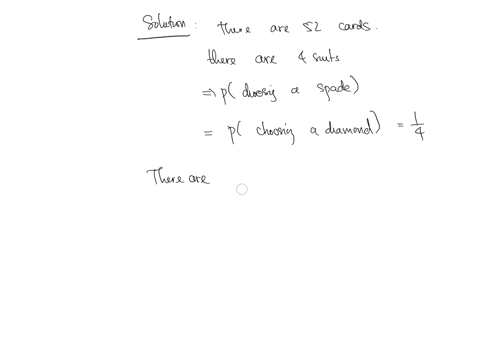 Solution : There are 52 cards.
there are 4 suits
⇒ p( choosing a spade)
= p( choosing a diamond) = 1/4
There are